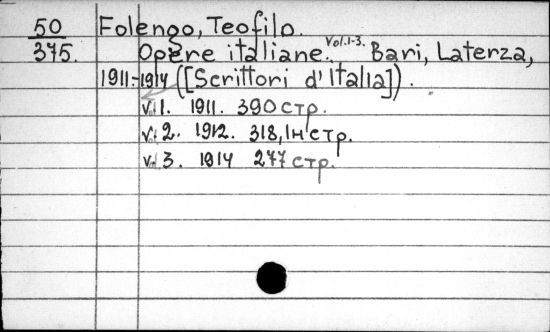 50 Folengo, Teofilo.
375. Opere italiane. Vol. 1-3. Bari, Laterza,
1911-1914 ([Scrittori d'Italia]).
V. 1. 1911. 390 стр.
V. 2. 1912. 318, 1н стр.
V. 3. 1914 277 стр.